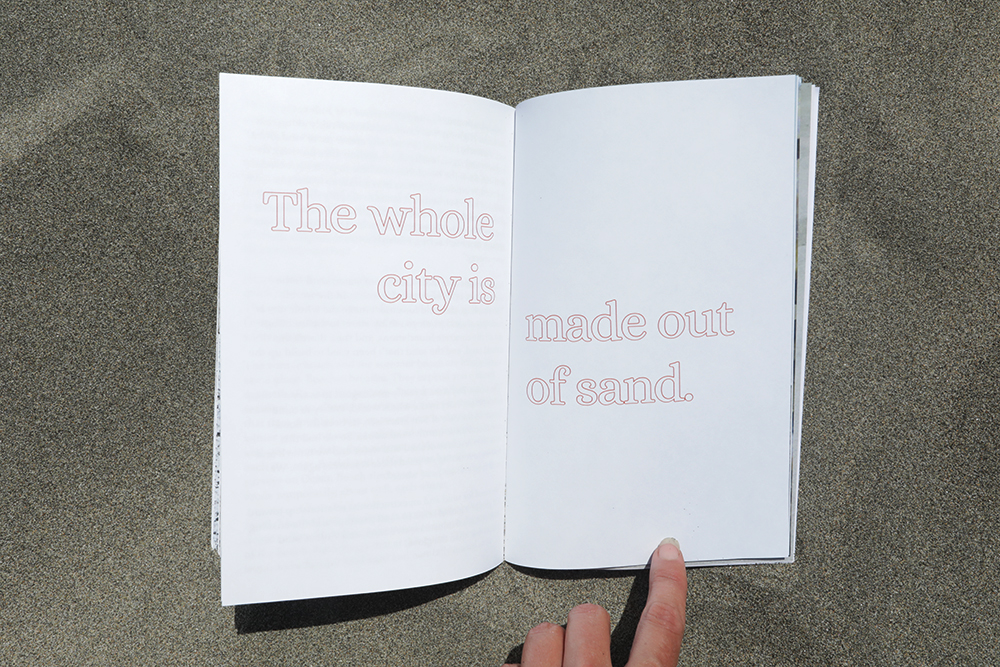 The whole
city is
made out
of sand.